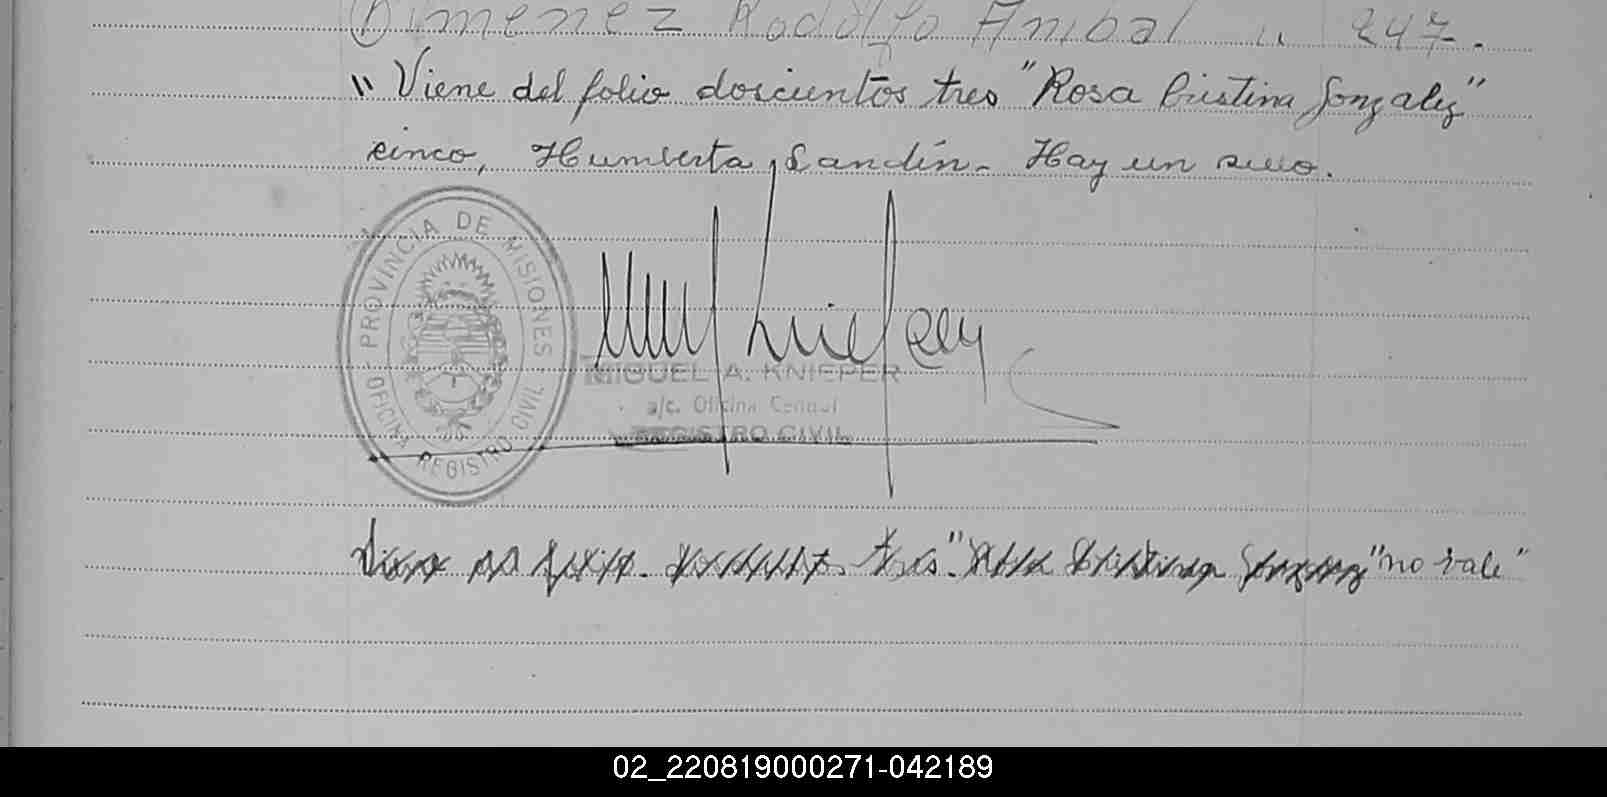 Gimenez Rodolfo Anibal " 247.
" Viene del folio doscientos tres "Rosa Cristina Gonzalez"
cinco, Humberta Sandín - Hay un sello.
PROVINCIA DE MISIONES
OFICINA REGISTRO CIVIL
MIGUEL A. KNIEPER
a/c. Oficina Central
REGISTRO CIVIL
Viene del folio doscientos tres "Rosa Cristina Gonzalez" no vale"
02_220819000271-042189